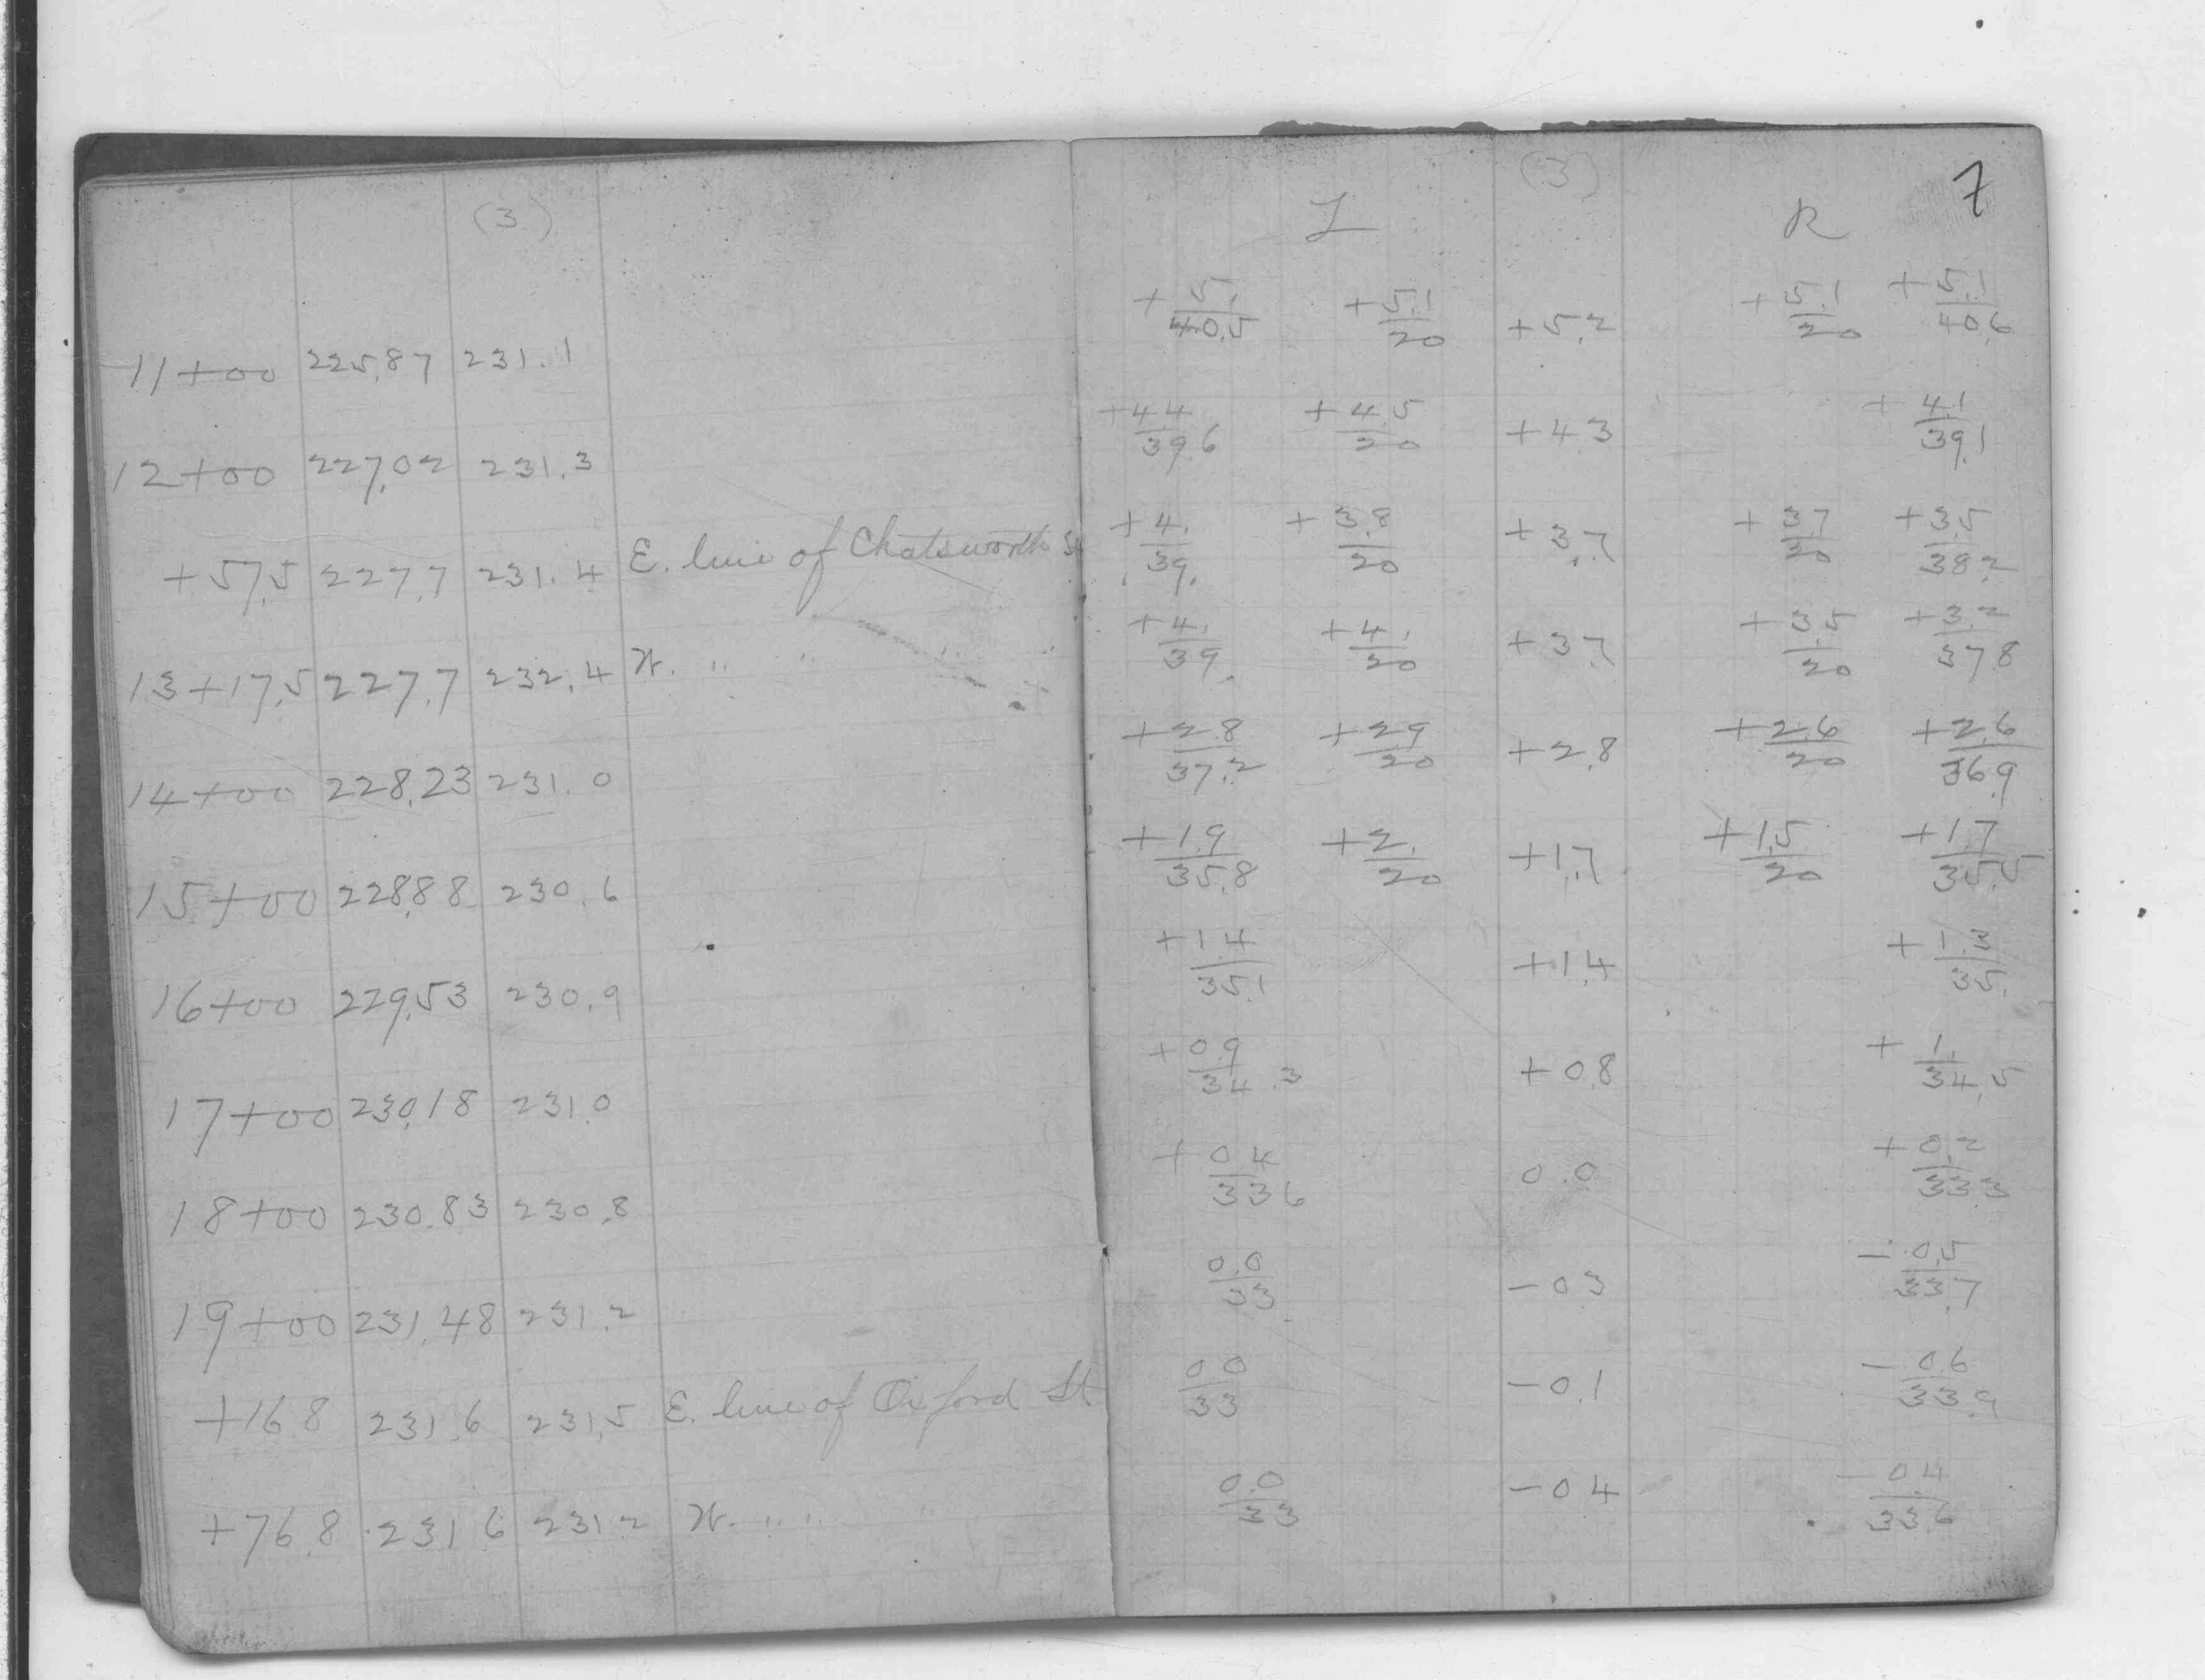 (3)
11+00 225.87 231.1
12+00 227.02 231.3
+57.5 227.7 231.4 E. line of Chatsworth St
13+17.5 227.7 232.4 W. " " " "
14+00 228.23 231.0
15+00 228.88 230.6
16+00 229.53 230.9
17+00 230.18 231.0
18+00 230.83 230.8
19+00 231.48 231.2
+16.8 231.6 231.5 E. line of Oxford St
+76.8 231.6 231.2 W. " "
(3) 7
L R
+5./40.5 +5.1/20 +5.2 +5.1/20 +5.1/40.6
+4.4/39.6 +4.5/20 +4.3 +4.1/39.1
+4./39. +3.8/20 +3.7 +3.7/20 +3.5/38.2
+4./39. +4./20 +3.7 +3.5/20 +3.2/37.8
+2.8/37.2 +2.9/20 +2.8 +2.6/20 +2.6/36.9
+1.9/35.8 +2./20 +1.7 +1.5/20 +1.7/35.5
+1.4/35.1 +1.4 +1.3/35.
+0.9/34.3 +0.8 +1./34.5
+0.4/33.6 0.0 +0.2/33.3
0.0/33 -0.3 -0.5/33.7
0.0/33 -0.1 -0.6/33.9
0.0/33 -0.4 -0.4/33.6